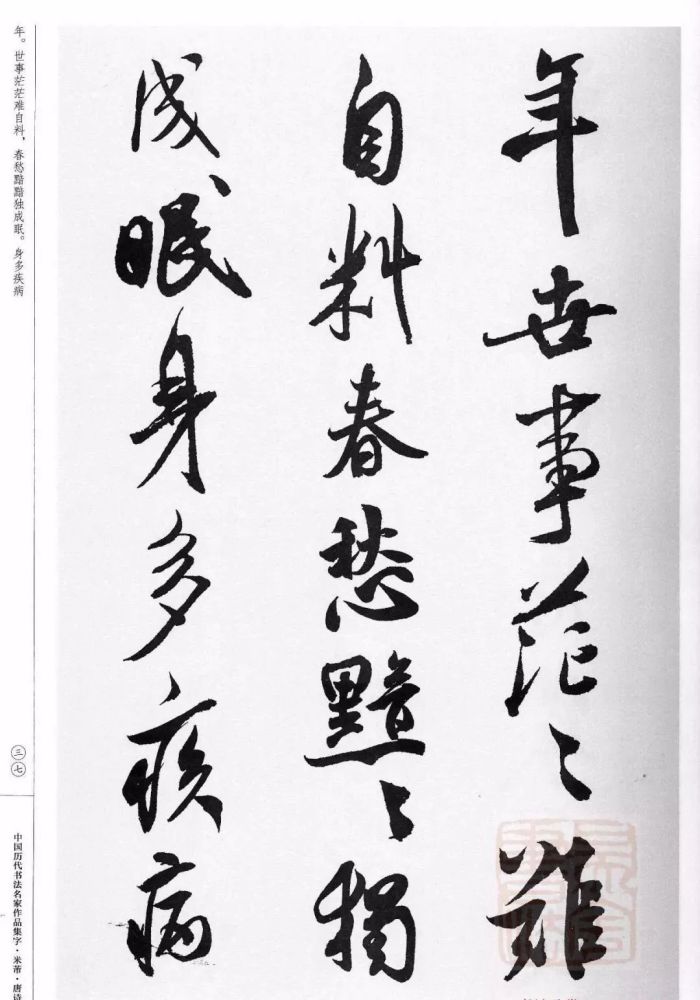 年世事茫〻難
自料春愁黯〻獨
成眠身多疾病
年。世事茫茫难自料，春愁黯黯独成眠。身多疾病
三七
中国历代书法名家作品集字·米芾·唐诗